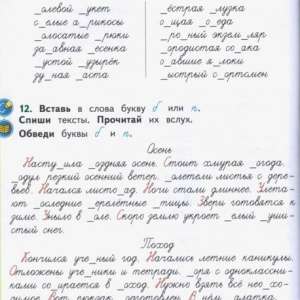 _олевой _укет
с_елые а_рикосы
_олосатые _рюки
за_авная _есенка
_устой _узырёк
зу_ная _аста
_ёстрая _лузка
о_щая _о_еда
_ро_ный экзем_ляр
_ородистая со_ака
о_авшие я_локи
_ыстрый с_ортсмен
12. Вставь в слова букву б или п.
Спиши тексты. Прочитай их вслух.
Обведи буквы б и п.
Осень
Насту_ила _оздняя осень. Стоит хмурая _огода.
_одул резкий осенний ветер. _олетели листья с дере-
вьев. Начался листо_ад. Ночи стали длиннее. Улета-
ют _оследние _ерелётные _тицы. Звери готовятся к
зиме. Уныло в _оле. Скоро землю укроет _елый _уши-
стый снег.
Поход
Кончился уче_ный год. Начались летние каникулы.
Отложены уче_ники и тетради. _оря с одноклассни-
ками со_ирается в _оход. Нужно взять всё нео_хо-